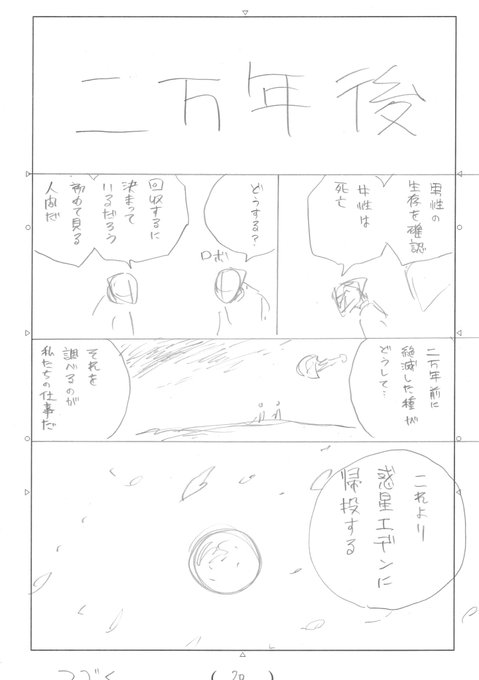 二万年後
男性の
生存を確認
女性は
死亡
どうする?
ロボ
回収するに
決まって
いるだろう
初めて見る
人間だ
二万年前に
絶滅した種が
どうして…
それを
調べるのが
私たちの仕事だ
これより
惑星エデンに
帰投する
つづく
(20)